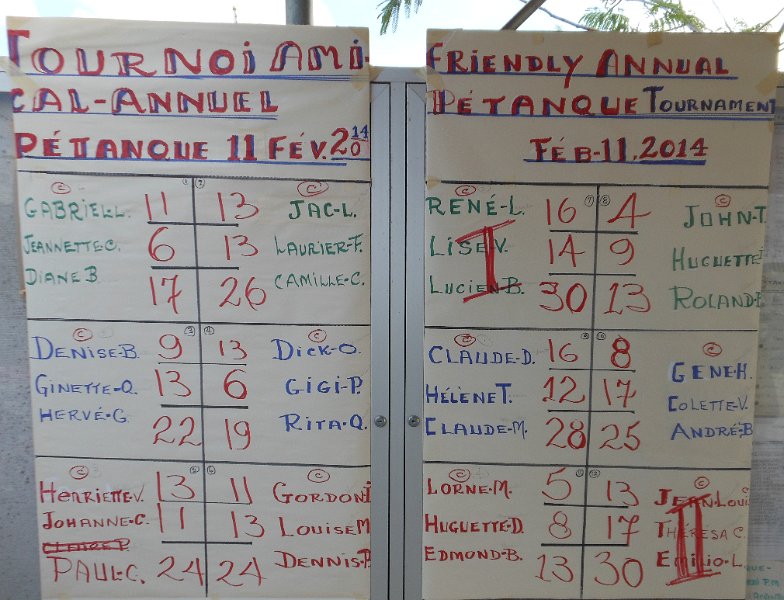 TOURNOI AMI-
CAL-ANNUEL
PÉTTANQUE 11 FÉV. 2014
GABRIEL L. 11 13 JAC-L.
JEANNETTE-C. 6 13 LAURIER-F.
DIANE B 17 26 CAMILLE-C.
DENISE-B. 9 13 DICK-O.
GINETTE-Q. 13 6 GIGI-P.
HERVÉ-G. 22 19 RITA-Q.
HENRIETTE-V. 13 11 GORDON
JOHANNE-C. 11 13 LOUISE M
PAUL-C. 24 24 DENNIS-P.
FRIENDLY ANNUAL
PÉTANQUE TOURNAMENT
FÉB-11, 2014
RENÉ-L. 16 4 JOHN-T.
LISE V. 14 9 HUGUETTE
LUCIEN-B. 30 13 ROLAND-B
I
CLAUDE-D. 16 8 GENE-H.
HÉLÈNE T. 12 17 COLETTE-V.
CLAUDE-M. 28 25 ANDRÉ-B
LORNE-M. 5 13 JEAN-LOUIS
HUGUETTE-D. 8 17 THÉRESA C.
EDMOND-B. 13 30 EMILIO-L.
II